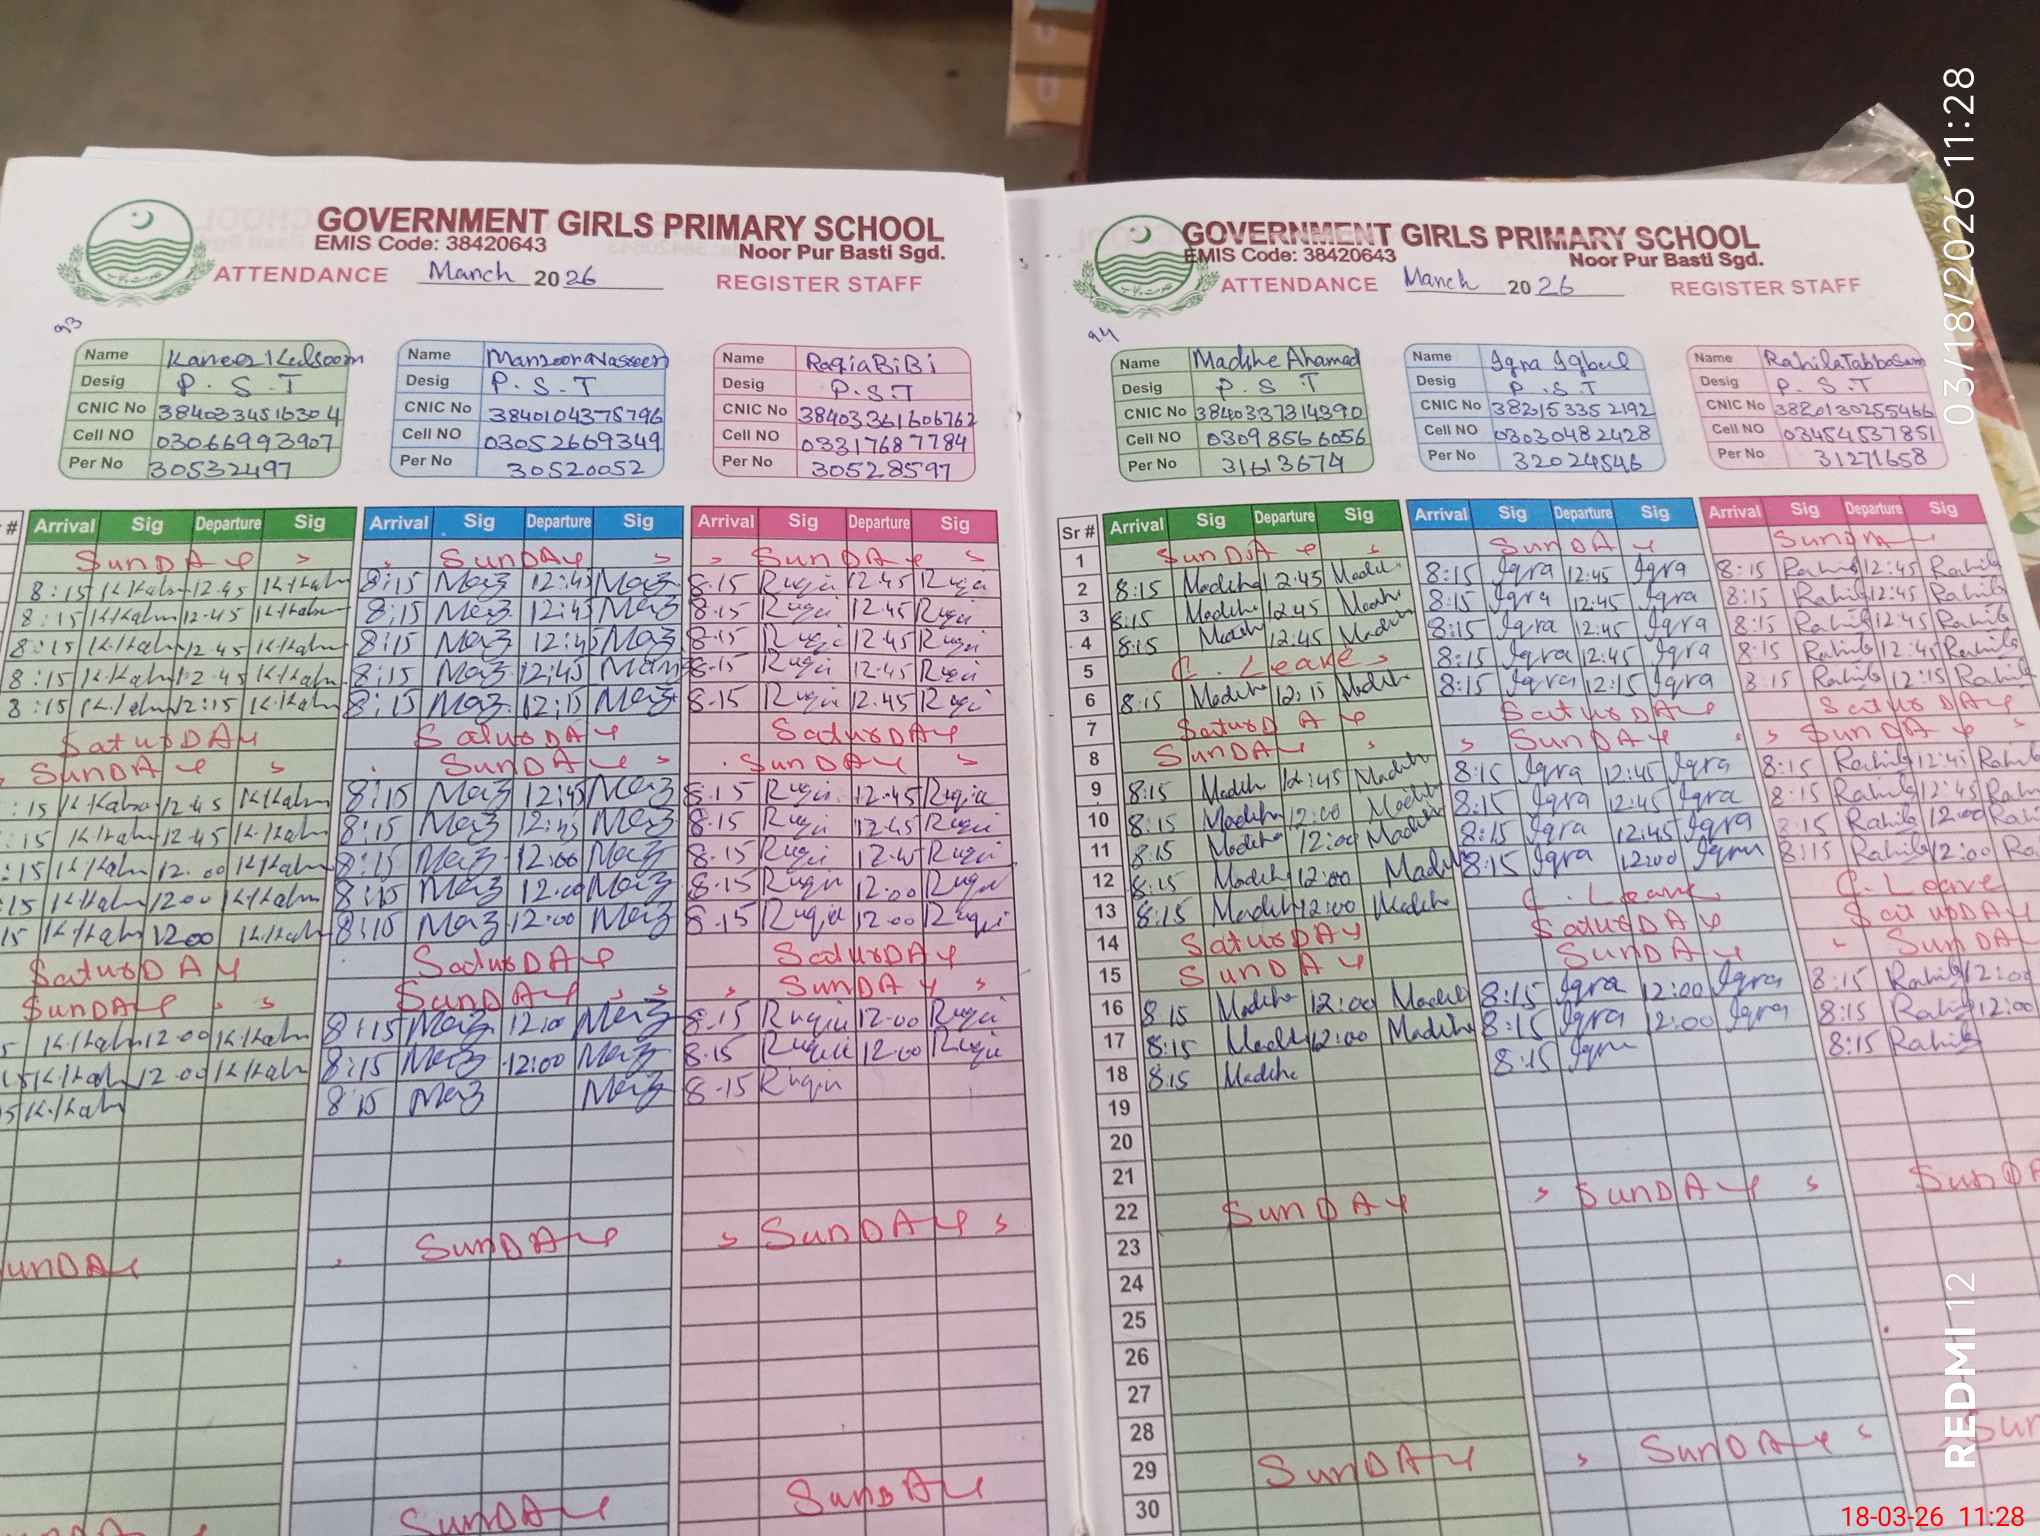 GOVERNMENT GIRLS PRIMARY SCHOOL
EMIS Code: 38420643
Noor Pur Basti Sgd.
ATTENDANCE March 2026 REGISTER STAFF
93
Name Kaneez Kulsoom
Desig P.S.T
CNIC No 3840334516304
Cell NO 03066993907
Per No 30532497
Name Manzoor Nasseen
Desig P.S.T
CNIC No 3840104375796
Cell NO 03052669349
Per No 30520052
Name RaqiaBiBi
Desig P.S.T
CNIC No 38403361606762
Cell NO 03317687784
Per No 30528597
# Arrival Sig Departure Sig Arrival Sig Departure Sig Arrival Sig Departure Sig
SunDAy SunDAy SunDAy
8:15 K.Kalm 12.45 K.Kalm 8:15 12:45 8.15 Ruqia 12.45 Ruqia
8:15 K.Kalm 12.45 K.Kalm 8:15 12:45 8.15 Ruqia 12.45 Ruqia
8:15 K.Kalm 12.45 K.Kalm 8:15 12:45 8.15 Ruqia 12.45 Ruqia
8:15 K.Kalm 12.45 K.Kalm 8:15 12:45 8.15 Ruqia 12.45 Ruqia
8:15 K.Kalm 12:15 K.Kalm 8:15 12:15 8.15 Ruqia 12.45 Ruqia
SaturDAy SaturDAy SaturDAy
SunDAy SunDAy SunDAy
:15 K.Kalm 12.45 K.Kalm 8:15 12:45 8.15 Ruqia 12.45 Ruqia
:15 K.Kalm 12.45 K.Kalm 8:15 12:45 8.15 Ruqia 12.45 Ruqia
:15 K.Kalm 12.00 K.Kalm 8:15 12:00 8.15 Ruqia Ruqia
:15 K.Kalm 1200 K.Kalm 8:15 12:00 8.15 Ruqia 12:00 Ruqia
15 K.Kalm 1200 K.Kalm 8:15 12:00 8.15 Ruqia 12.00 Ruqia
SaturDAy SaturDAy SaturDAy
SunDAy SunDAy SunDAy
5 K.Kalm 12.00 K.Kalm 8:15 12:00 8.15 Ruqia 12.00 Ruqia
15 K.Kalm 12.00 K.Kalm 8:15 12:00 8.15 Ruqia 12.00 Ruqia
5 K.Kalm 8:15 8.15 Ruqia
unDAy SunDAy SunDAy
SunDAy SunDAy
GOVERNMENT GIRLS PRIMARY SCHOOL
EMIS Code: 38420643
Noor Pur Basti Sgd.
ATTENDANCE March 2026 REGISTER STAFF
94
Name Madihe Ahamad
Desig P.S.T
CNIC No 3840337314390
Cell NO 03098566056
Per No 31613674
Name Iqra Iqbal
Desig P.S.T
CNIC No 382153352192
Cell NO 03030482428
Per No 32024546
Name RahilaTabbasam
Desig P.S.T
CNIC No 3820130255466
Cell NO 03454537851
Per No 31271658
Sr # Arrival Sig Departure Sig Arrival Sig Departure Sig Arrival Sig Departure Sig
1 SunDAy SunDAy
2 8:15 Madiha 12:45 Madiha 8:15 Iqra 12:45 Iqra 8:15 Rahila 12:45 Rahila
3 8:15 Madiha 12:45 Madiha 8:15 Iqra 12:45 Iqra 8:15 Rahila 12:45 Rahila
4 8:15 Madiha 12:45 Madiha 8:15 Iqra 12:45 Iqra 8:15 Rahila 12:45 Rahila
5 C. Leave 8:15 Iqra 12:45 Iqra 8:15 Rahila 12:45 Rahila
6 8:15 Madiha 12:15 Madiha 8:15 Iqra 12:15 Iqra 8:15 Rahila 12:15 Rahila
7 SaturDAy SaturDAy SaturDAy
8 SunDAy SunDAy SunDAy
9 8:15 Madiha 12:45 Madiha 8:15 Iqra 12:45 Iqra 8:15 Rahila 12:45 Rahila
10 8:15 Madiha 12:00 Madiha 8:15 Iqra 12:45 Iqra 8:15 Rahila 12:45 Rahi
11 8:15 Madiha 12:00 Madiha 8:15 Iqra 12:45 Iqra 8:15 Rahila 12:00 Rah
12 8:15 Madiha 12:00 Madiha 8:15 Iqra 12:00 Iqra 8:15 Rahila 12:00 Ra
13 8:15 Madiha 12:00 Madiha C. Leave C. Leave
14 SaturDAy SaturDAy SaturDAy
15 SunDAy SunDAy SunDAy
16 8:15 Madiha 12:00 Madiha 8:15 Iqra 12:00 Iqra 8:15 Rahila 12:00
17 8:15 Madiha 12:00 Madiha 8:15 Iqra 12:00 Iqra 8:15 Rahila 12:00
18 8:15 Madiha 8:15 Iqra 8:15 Rahila
19
20
21
22 SunDAy SunDAy SunDA
23
24
25
26
27
28
29 SunDAy SunDAy Sun
30
03/18/2026 11:28
REDMI 12
18-03-26 11:28